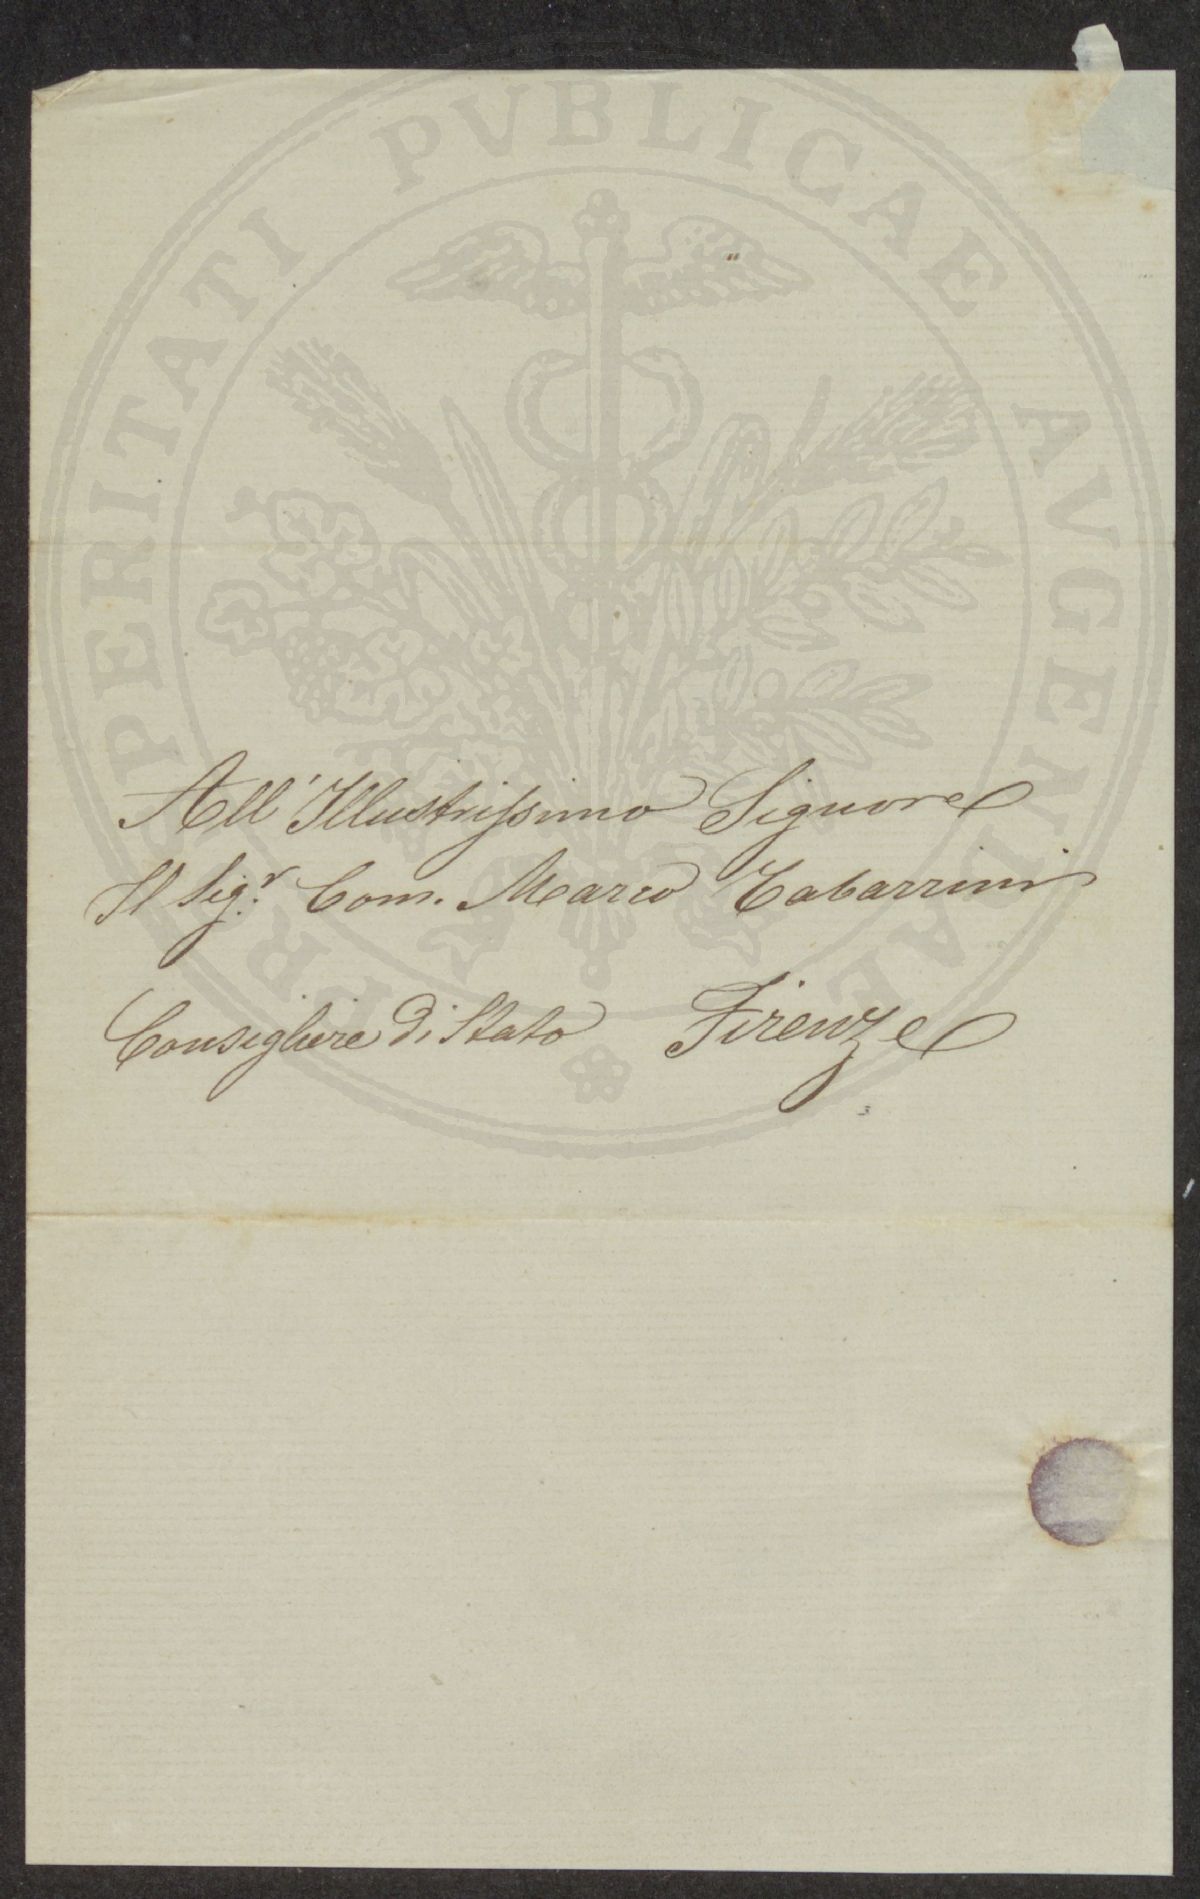 All'Illustrissimo Signore
Il Sig.r Com. Marco Tabarrini
Consigliere di Stato Firenze
PROSPERITATI PVBLICAE AVGENDAE